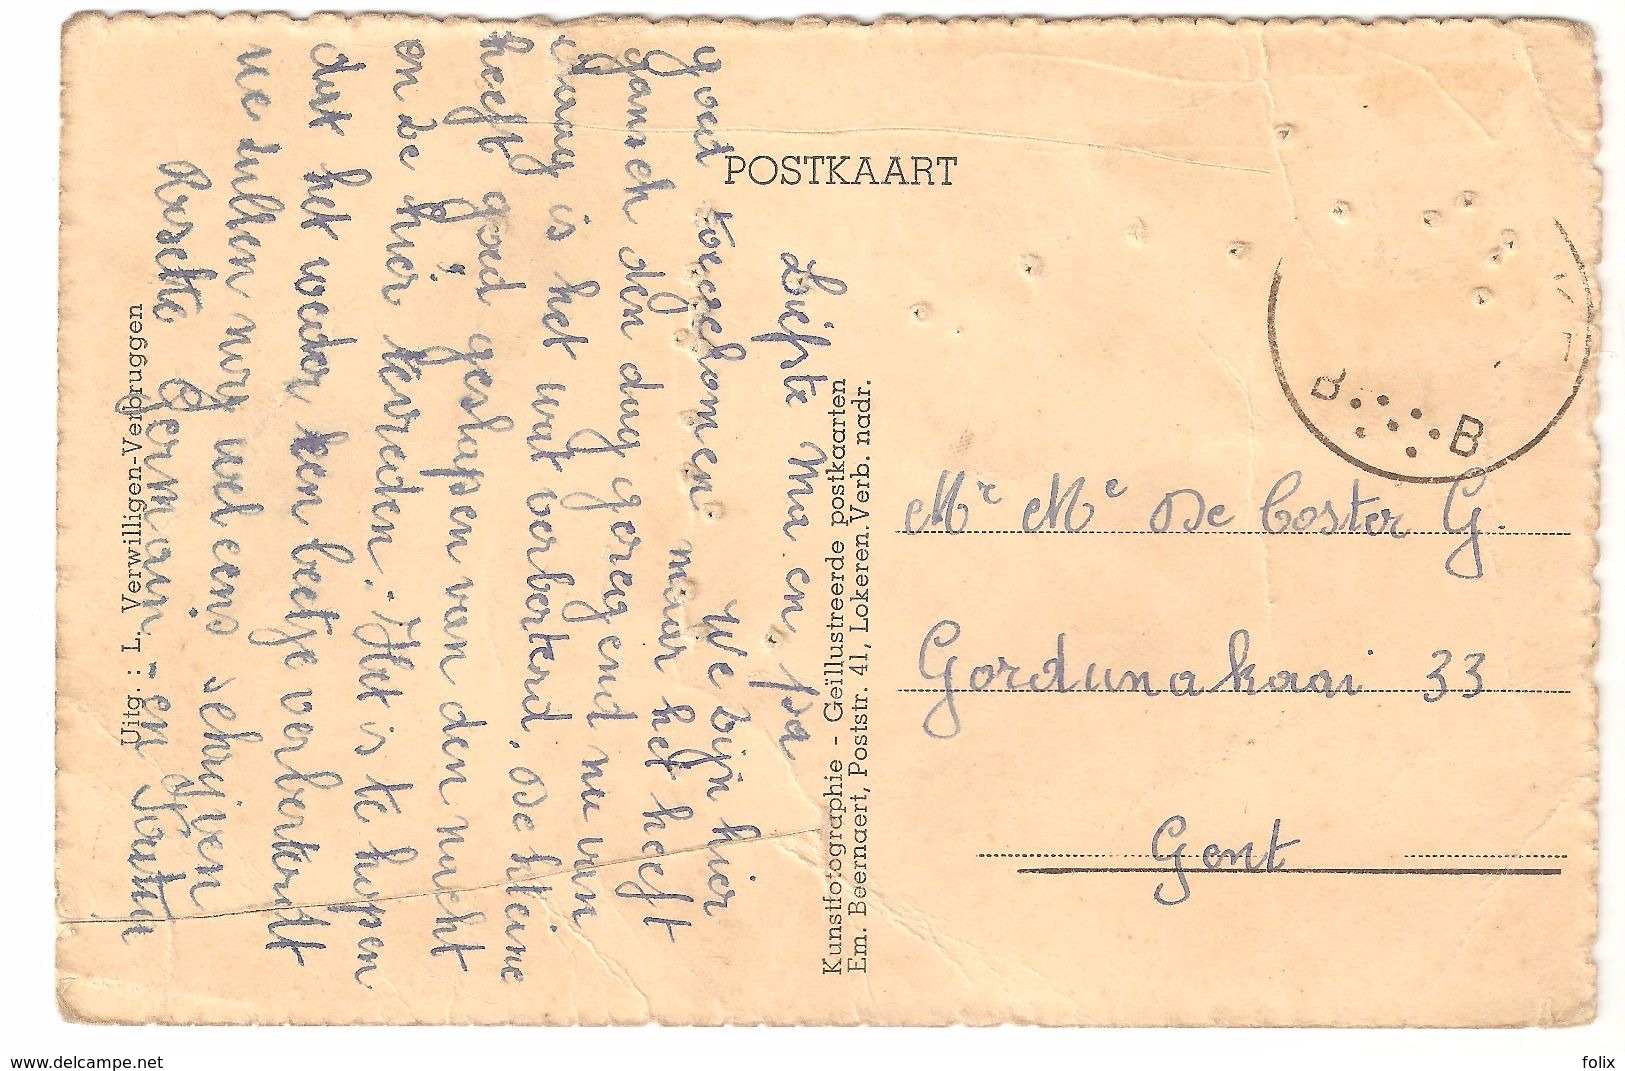 POSTKAART
Liefste Ma en pa
We zijn hier
goed toegekomen maar het heeft
gansch den dag geregend nu van
daag is het wat verbeterd. De kleine
heeft goed geslapen van den nacht
en ze hier tevreden. - Het is te hopen
dat het weder een beetje verbeterdt
we zullen nog wel eens schrijven
Germain - en
Uitg. : L. Verwilligen-Verbruggen
Kunstfotographie - Geillustreerde postkaarten
Em. Beernaert, Poststr. 41, Lokeren. Verb. nadr.
B B
Mr Me De Coster G.
Gordunakaai 33
Gent
www.delcampe.net
folix